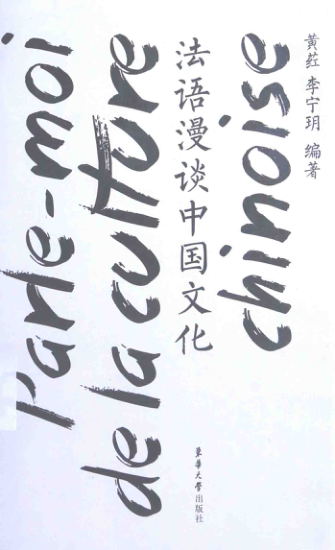 Parle-moi
de la culture
chinoise
法语漫谈中国文化
黄荭 李宁玥 编著
东华大学出版社